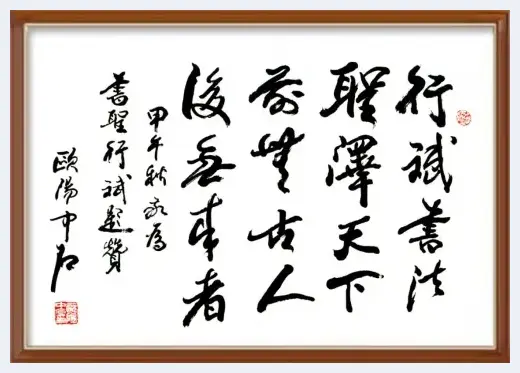 行斌書法
聖澤天下
前無古人
後無來者
甲午秋敬為
書聖行斌題贊
歐陽中石